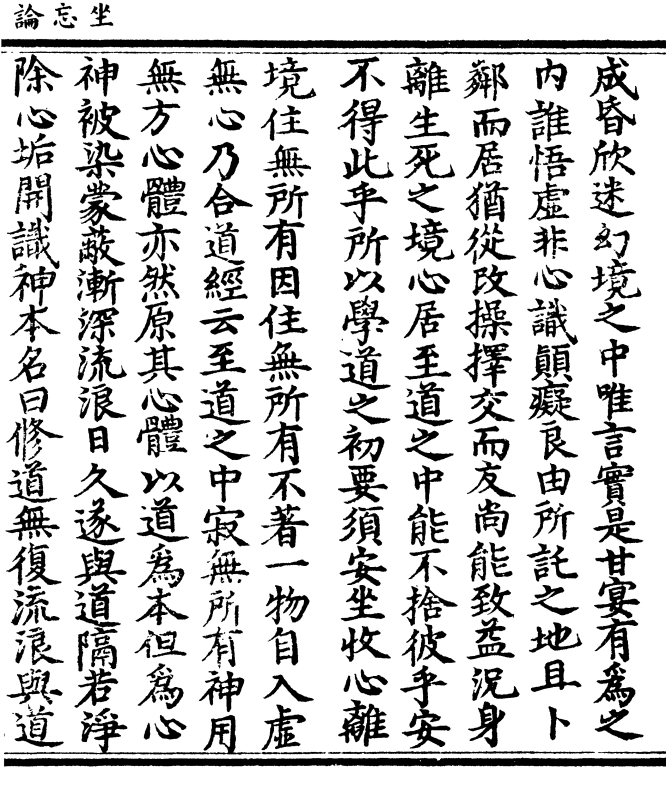 坐忘論
成昏欣迷幻境之中唯言實是甘宴有爲之
內誰悟虛非心識顛癡良由所託之地且卜
鄰而居猶從改操擇交而友尚能致益況身
離生死之境心居至道之中能不捨彼乎安
不得此乎所以學道之初要須安坐收心離
境住無所有因住無所有不著一物自入虛
無心乃合道經云至道之中寂無所有神用
無方心體亦然原其心體以道爲本但爲心
神被染蒙蔽漸深流浪日久遂與道隔若淨
除心垢開識神本名曰修道無復流浪與道